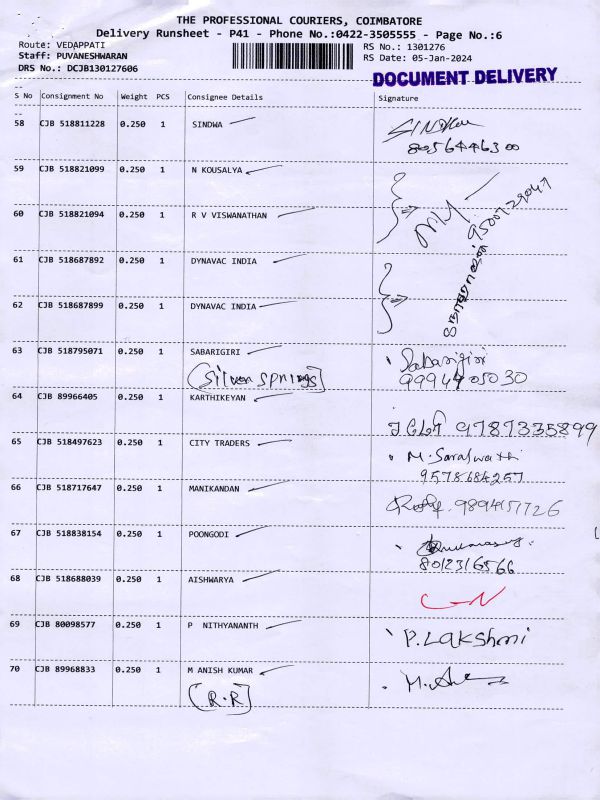 THE PROFESSIONAL COURIERS, COIMBATORE
Delivery Runsheet - P41 - Phone No.:0422-3505555 - Page No.:6
Route: VEDAPPATI RS No.: 1301276
Staff: PUVANESHWARAN RS Date: 05-Jan-2024
DRS No.: DCJB130127606
DOCUMENT DELIVERY
S No Consignment No Weight PCS Consignee Details Signature
58 CJB 518811228 0.250 1 SINDWA
8056446300
59 CJB 518821099 0.250 1 N KOUSALYA
60 CJB 518821094 0.250 1 R V VISWANATHAN
61 CJB 518687892 0.250 1 DYNAVAC INDIA
62 CJB 518687899 0.250 1 DYNAVAC INDIA
63 CJB 518795071 0.250 1 SABARIGIRI Sabarigiri
(Silver Springs) 9994905030
64 CJB 89966405 0.250 1 KARTHIKEYAN
9787335899
65 CJB 518497623 0.250 1 CITY TRADERS M. Saraswathi
9578684257
66 CJB 518717647 0.250 1 MANIKANDAN
67 CJB 518838154 0.250 1 POONGODI
8012316566
68 CJB 518688039 0.250 1 AISHWARYA
69 CJB 80098577 0.250 1 P NITHYANANTH P. Lakshmi
70 CJB 89968833 0.250 1 M ANISH KUMAR
(R.R)